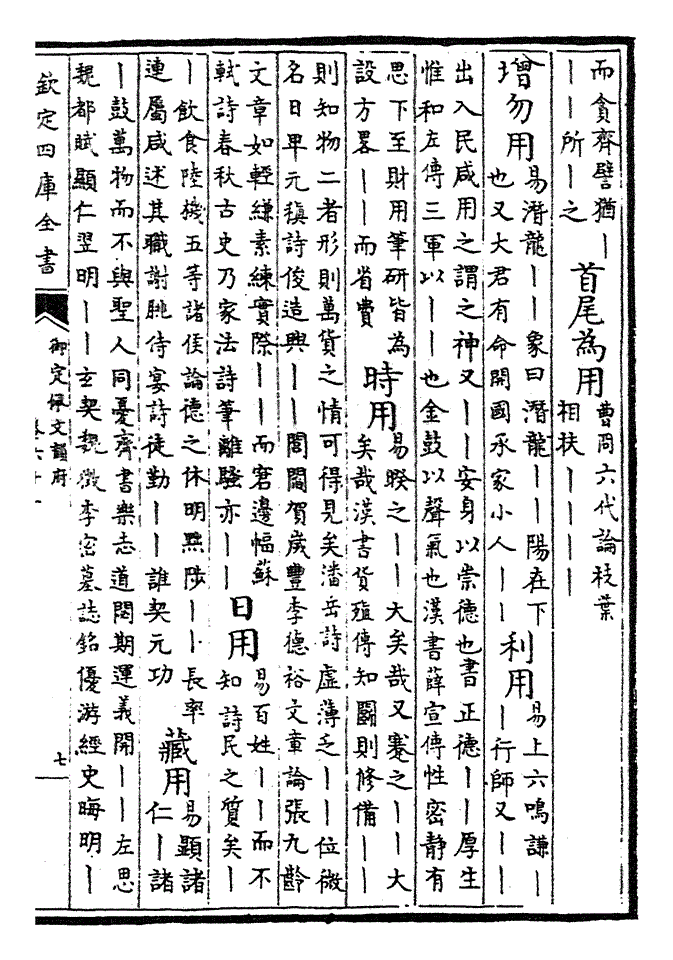 而貪齊譬猶丨
丨丨所丨之
首尾為用
曹冏六代論枝葉
相扶丨丨丨丨
增勿用
易潛龍丨丨象曰潛龍丨丨陽在下
也又大君有命開國承家小人丨丨
利用
易上六鳴謙丨
丨行師又丨丨
出入民咸用之謂之神又丨丨安身以崇德也書正德丨丨厚生
惟和左傳三軍以丨丨也金鼓以聲氣也漢書薛宣傳性密静有
思下至財用筆研皆為
設方畧丨丨而省費
時用
易暌之丨丨大矣哉又蹇之丨丨大
矣哉漢書貨殖傳知鬭則修備丨丨
則知物二者形則萬貨之情可得見矣潘岳詩虛薄乏丨丨位微
名日卑元稹詩俊造興丨丨閭閻賀歲豐李德裕文章論張九齡
文章如輕縑素練實際丨丨而窘邊幅蘇
軾詩春秋古史乃家法詩筆離騷亦丨丨
日用
易百姓丨丨而不
知詩民之質矣丨
丨飲食陸機五等諸侯論德之休明黜陟丨丨長率
連屬咸述其職謝朓侍宴詩徒勤丨丨誰契元功
藏用
易顯諸
仁丨諸
丨鼓萬物而不與聖人同憂齊書樂志道閟期運義開丨丨左思
魏都賦顯仁翌明丨丨玄契魏徵李密墓誌銘優游經史晦明丨
欽定四庫全書
御定佩文韻府
七